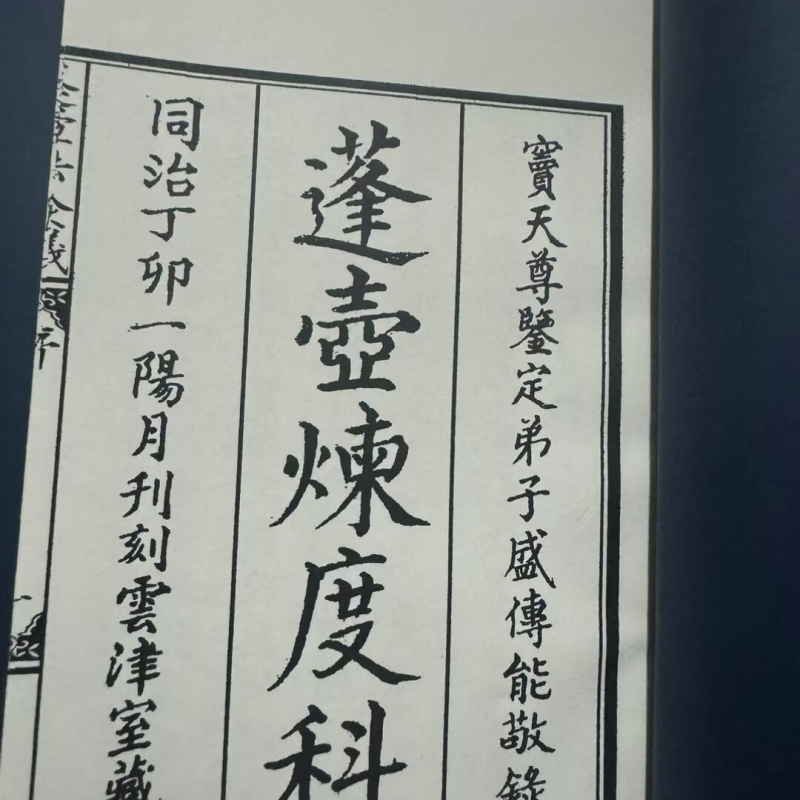 竇天尊鑒定弟子盛傳能敬錄
蓬壺煉度科
同治丁卯一陽月刊刻雲津室藏